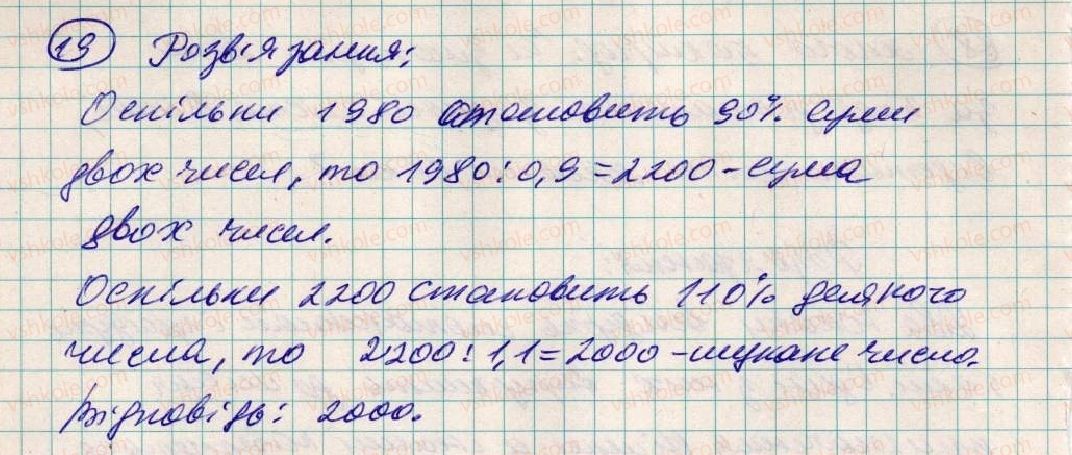 19 Розв'язання:
Оскільки 1980 становить 90% суми
двох чисел, то 1980 : 0,9 = 2200 - сума
двох чисел.
Оскільки 2200 становить 110% деякого
числа, то 2200 : 1,1 = 2000 - шукане число.
Відповідь: 2000.